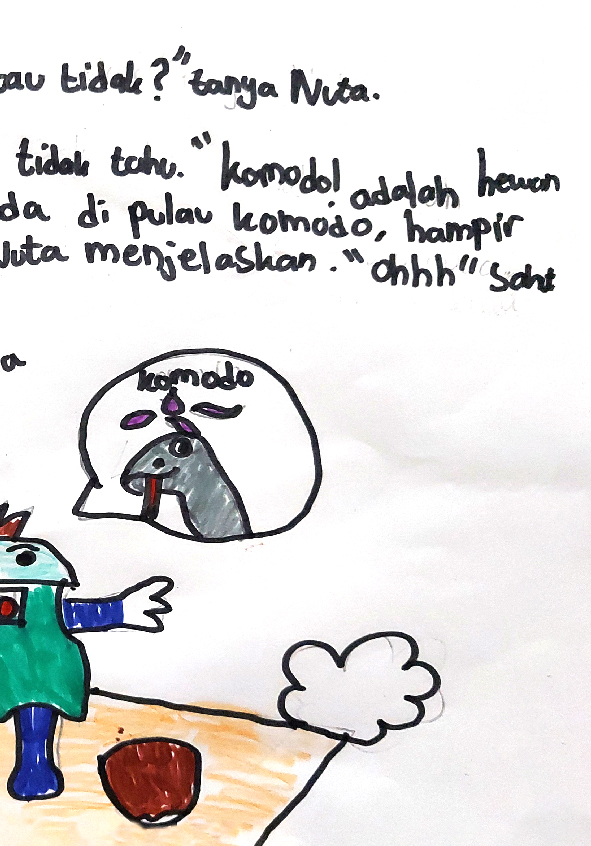 tidak?" tanya Nuta.
tidak tahu. "komodo! adalah hewan
da di pulau komodo, hampir
Nuta menjelaskan. "Ohhh" Saht
a
komodo